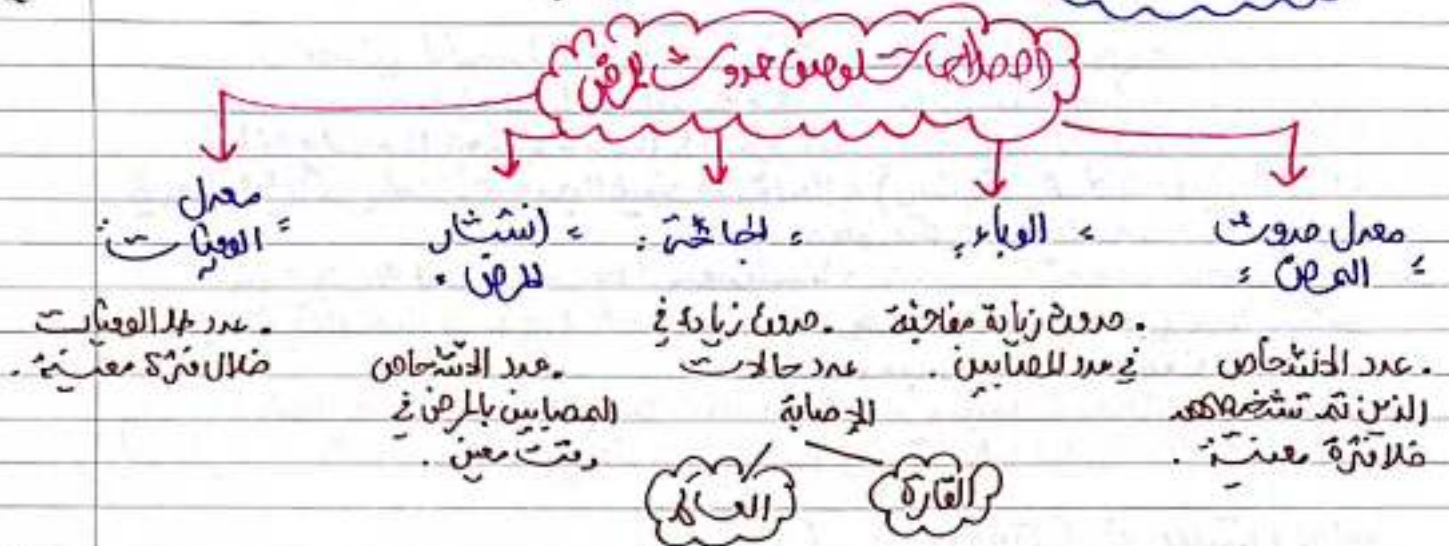 اصطلاحات لوصف حدوث المرض
معدل حدوث
المرض :
. عدد الاشخاص
الذين تم تشخيصهم
خلال فترة معينة .
الوباء
. حدوث زيادة مفاجئة
في عدد المصابين .
الجائحة :
. حدوث زيادة في
عدد حالات
الإصابة
القارة
العالم
انتشار
المرض .
. عدد الاشخاص
المصابين بالمرض في
وقت معين .
معدل
الوفيات :
. عدد الوفيات
خلال فترة معينة .